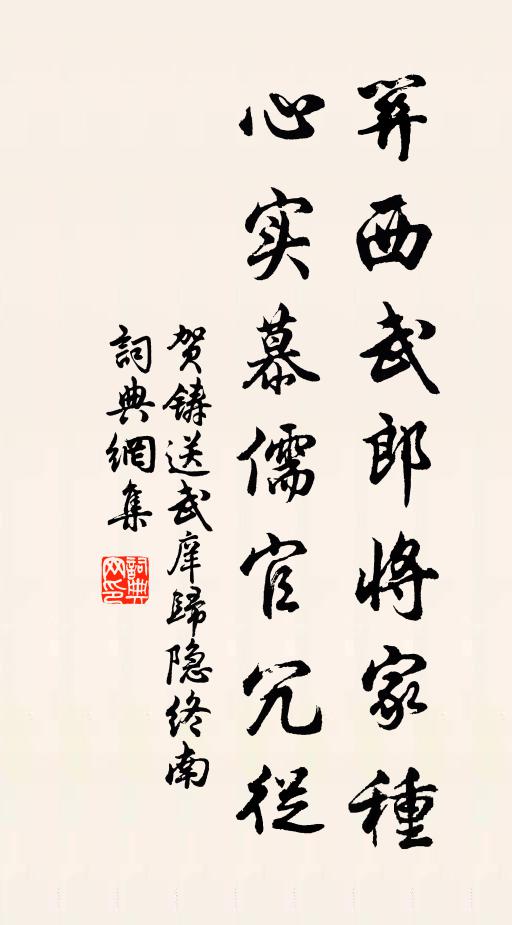 關西武郎将家種
心实慕儒官冗從
贺鑄送武庠歸隐终南
詞典網集
詞典网印